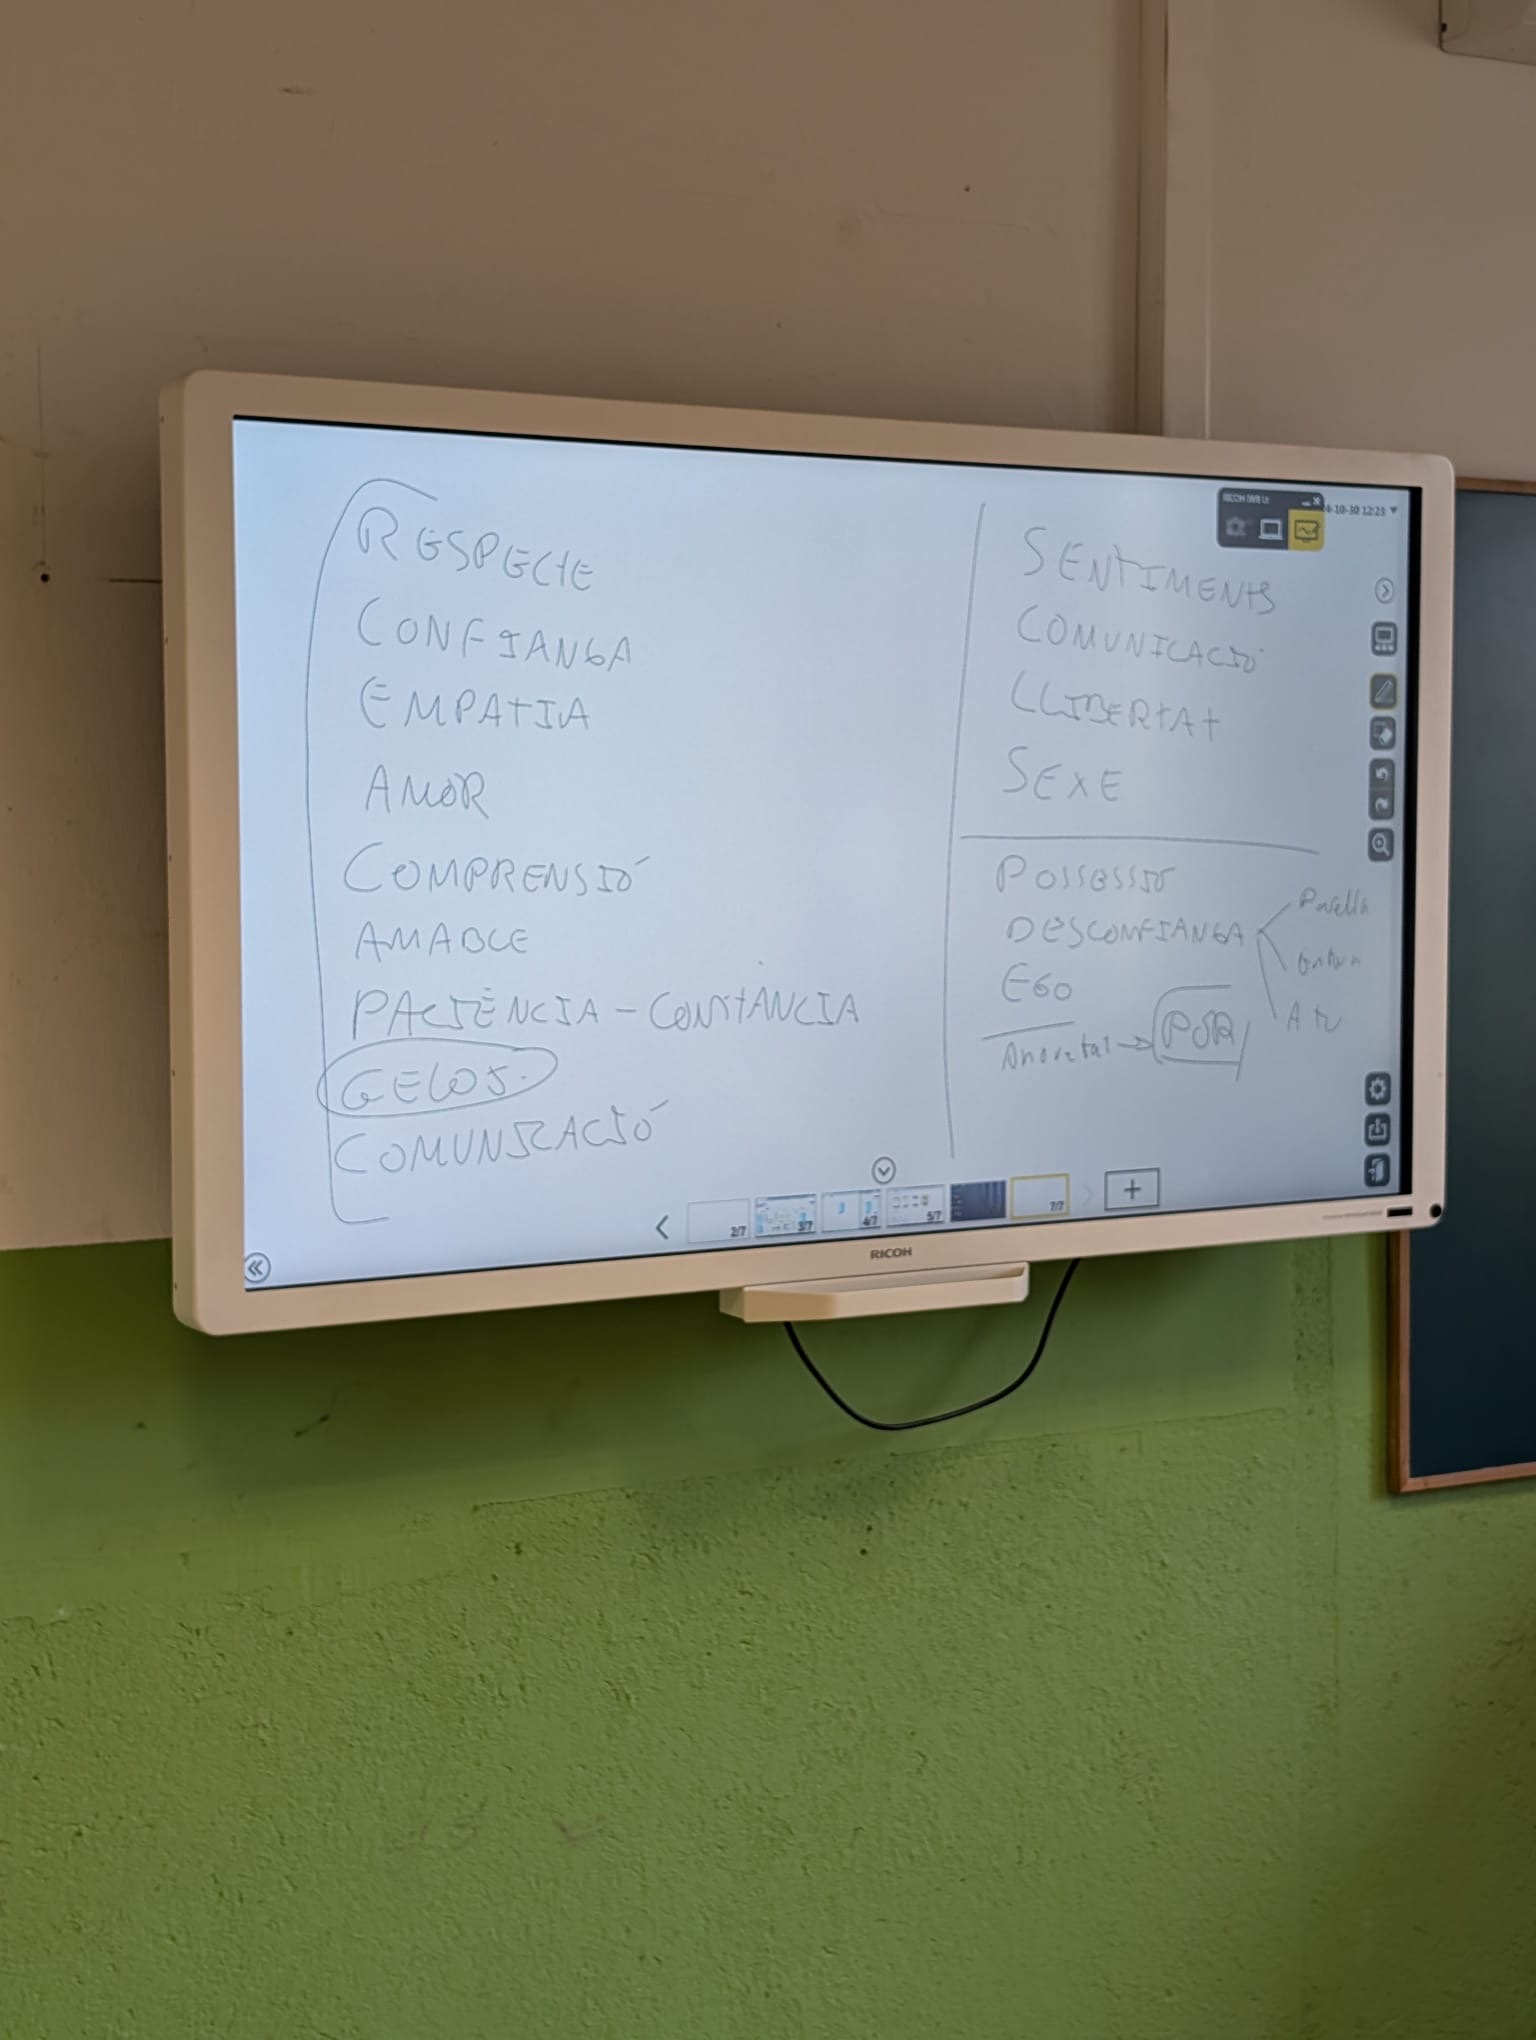 RESPECTE
CONFIANÇA
EMPATIA
AMOR
COMPRENSIÓ
AMABLE
PACIÈNCIA - CONSTÀNCIA
GELOS.
COMUNICACIÓ
SENTIMENTS
COMUNICACIÓ
LLIBERTAT
SEXE
POSSESSIÓ
DESCONFIANÇA
Parella
Entorn
A tu
EGO
POR
RICOH IWB Ut
4-10-30 12:23
2/7
3/7
4/7
5/7
7/7
RICOH